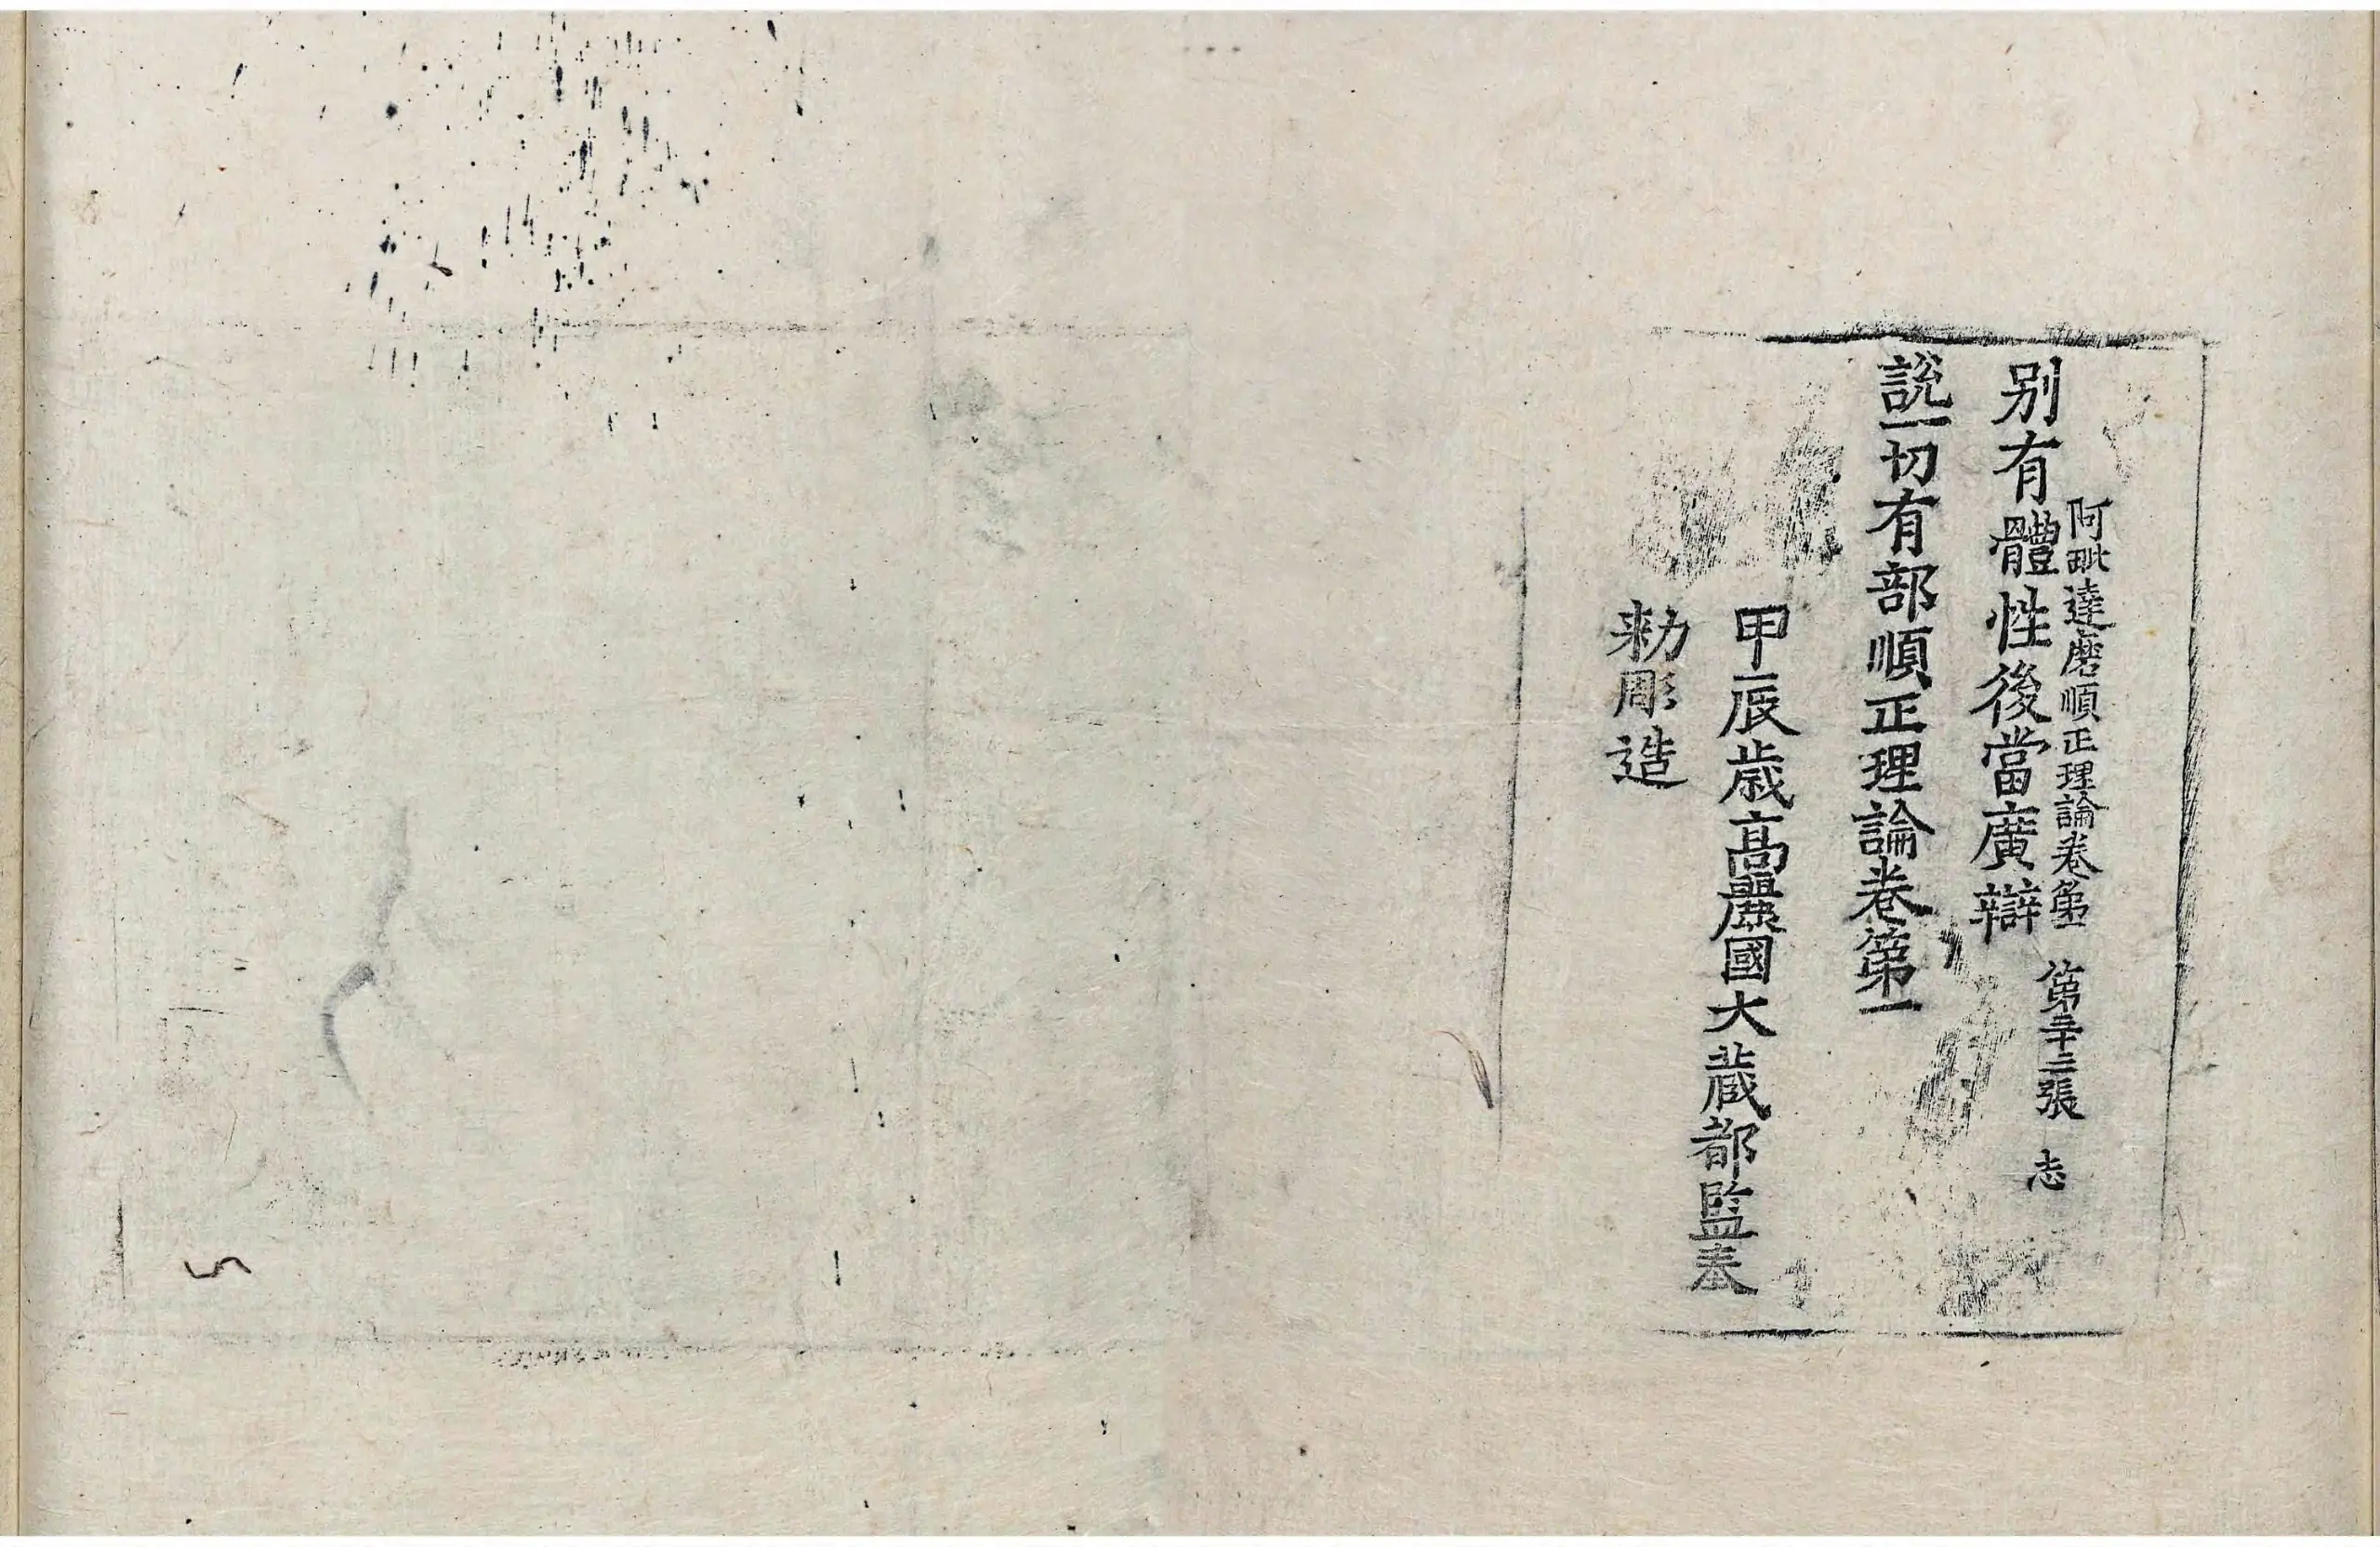 阿毗達磨順正理論卷第一 第二十二張 志
别有體性後當廣辯
說一切有部順正理論卷第一
甲辰歲高麗國大藏都監奉
勑彫造